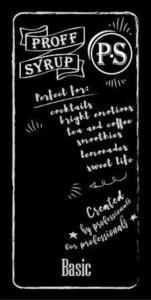 PROFF
SYRUP
P·S
Perfect for:
cocktails
bright emotions
tea and coffee
smoothies
lemonades
sweet life
Created
by professionals
for professionals
Basic